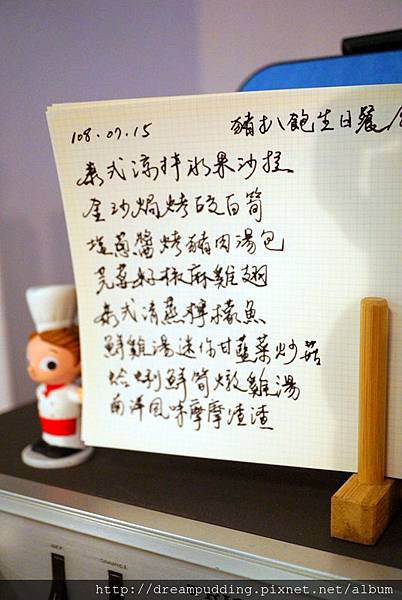 108.07.15 豬扒飽生日餐
泰式涼拌水果沙拉
金沙焗烤茭白筍
塩蔥醬烤豬肉湯包
芫荽籽椒麻雞翅
泰式清蒸檸檬魚
鮮雞湯迷你甘藍菜炒菇
蛤蜊鮮筍燉雞湯
南洋風味摩摩渣渣
http://dreampudding.pixnet.net/album